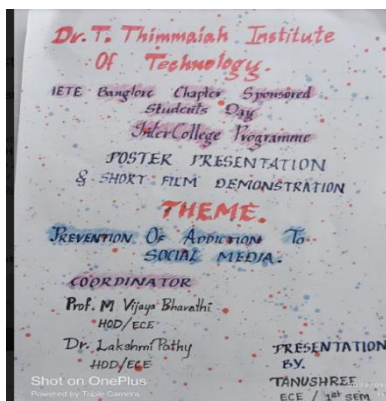 Dr. T. Thimmaiah Institute
Of Technology.
IETE Banglore Chapter Sponsored
Students Day
InterCollege Programme
POSTER PRESENTATION
& SHORT FILM DEMONSTRATION
THEME.
PREVENTION OF ADDICTION TO
SOCIAL MEDIA.
COORDINATOR
Prof. M Vijaya Bharathi
HOD/ECE
Dr. Lakshmi Pathy
HOD/ECE
PRESENTATION
BY.
TANUSHREE
ECE / 1st SEM
Shot on OnePlus
Powered by Triple Camera